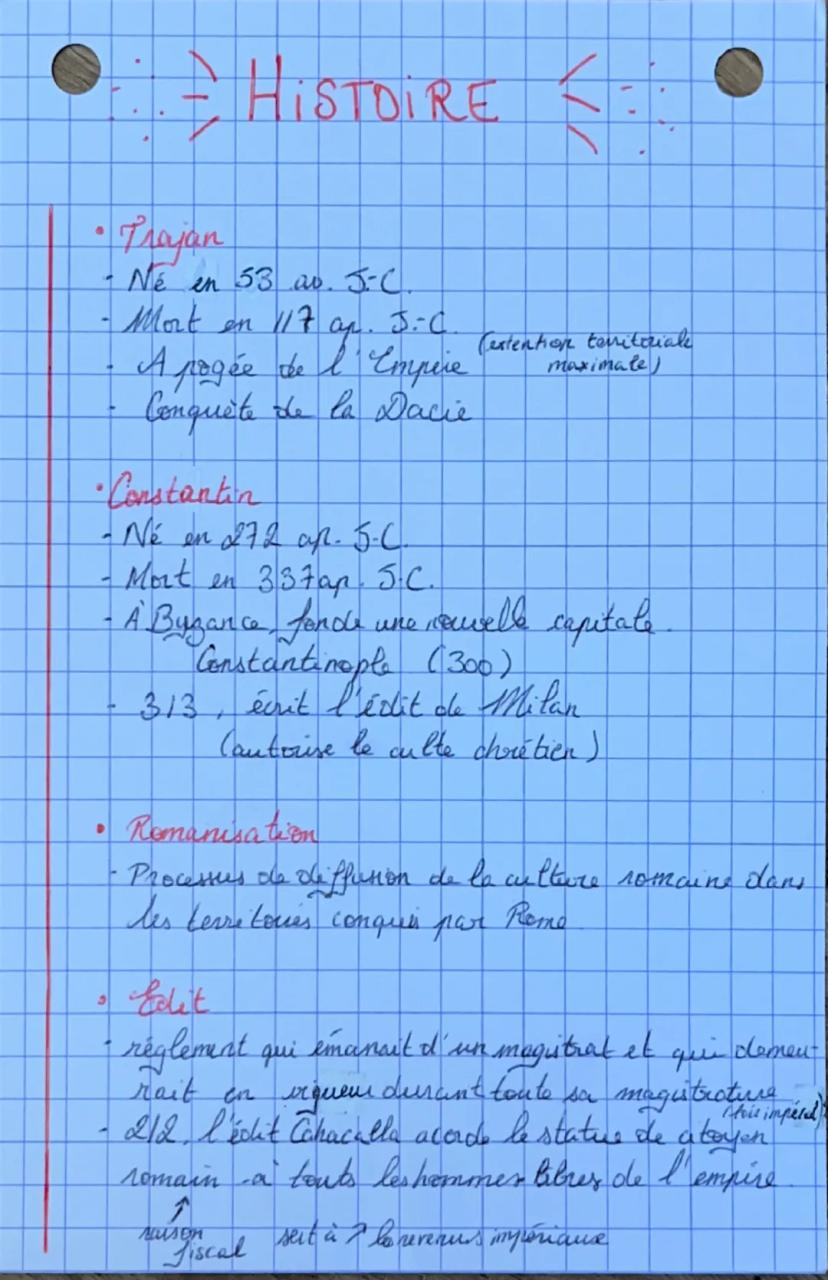 HiSTOiRE
• Trajan
- Né en 53 av. J.-C.
- Mort en 117 ap. J.-C.
- Apogée de l'Empire (extention territoriale
maximale)
- Conquète de la Dacie
• Constantin
- Né en 272 ap. J-C.
- Mort en 337 ap. J.C.
- À Byzance, fonde une nouvelle capitale
Constantinople (300)
- 313, écrit l'édit de Milan
(autorise le culte chrétien)
• Romanisation
- Processus de diffusion de la culture romaine dans
les territoires conquis par Rome
• Edit
- règlement qui émanait d'un magistrat et qui demeu-
rait en vigueur durant toute sa magistrature
(loi impérial)
- 212, l'édit Cahacalla acorde le statue de citoyen
romain à touts les hommes libres de l'empire.
↑
raison
fiscal sert à ↗ les revenus impériaux